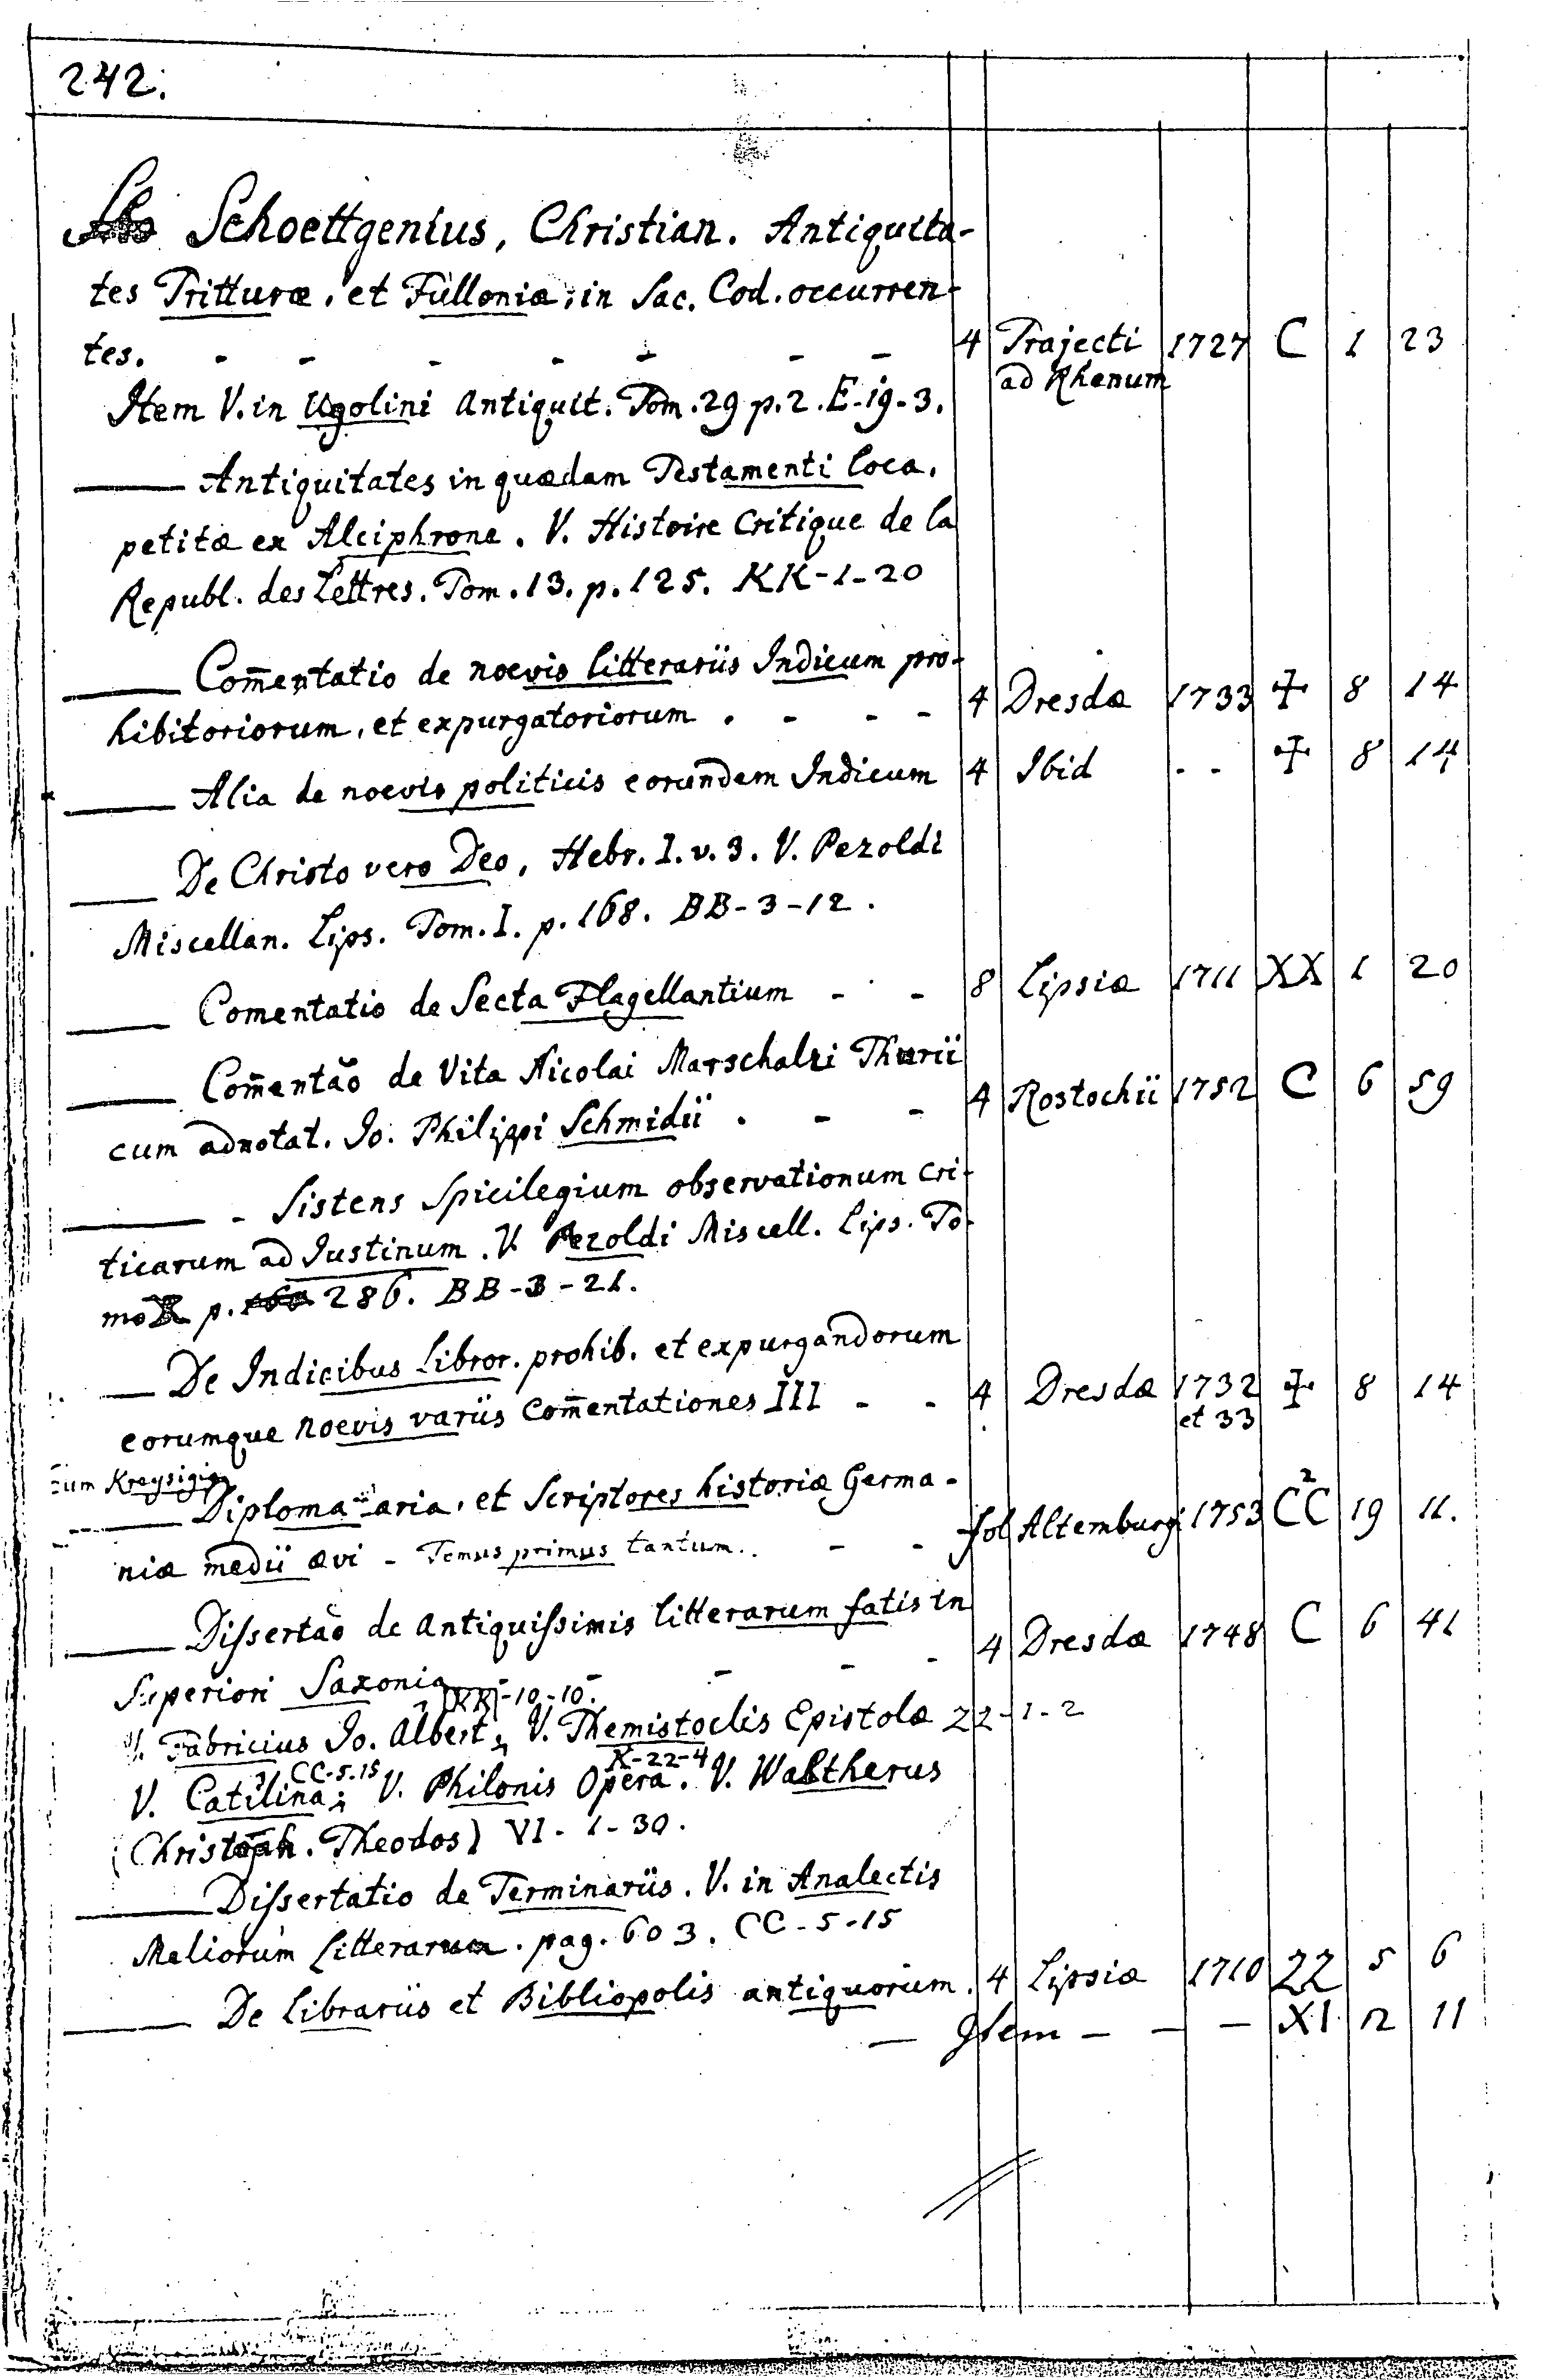 242.
Schoettgenius, Christian. Antiquita-
tes Tritturæ, et Fulloniæ, in Sac. Cod. occurren-
tes. - - - - - - - 4 Trajecti 1727 C 1 23
ad Rhenum
Item V. in Ugolini Antiquit. Tom. 29 p. 2. E-19-3.
—— Antiquitates in quædam Testamenti loca,
petitæ ex Alciphrone. V. Histoire Critique de la
Republ. des Lettres. Tom. 13. p. 125. KK-1-20
—— Com̄entatio de noevis litterariis Indicum pro-
hibitoriorum, et expurgatoriorum . - - - 4 Dresdæ 1733 ✢ 8 14
—— Alia de noevis politicis eorundem Indicum 4 Ibid - - ✢ 8 14
—— De Christo vero Deo, Hebr. I. v. 3. V. Pezoldi
Miscellan. Lips. Tom. I. p. 168. BB-3-12.
—— Comentatio de Secta Flagellantium - - 8 Lipsiæ 1711 XX 1 20
—— Com̄então de Vita Nicolai Marschalci Thurii
cum adnotat. Jo. Philippi Schmidii . - - 4 Rostochii 1752 C 6 59
—— - Sistens Spicilegium observationum cri-
ticarum ad Justinum. V. Pezoldi Miscell. Lips. To-
mo p. 286. BB-3-21.
—— De Indicibus Libror. prohib. et expurgandorum
eorumque noevis variis com̄entationes III - - 4 Dresdæ 1732 ✢ 8 14
et 33
cum Kreysigio
—— Diplomataria, et Scriptores historiæ Germa-
niæ medii ævi - Tomus primus tantum. - - fol Altemburgi 1753 CC 2 19 11.
—— Dissertão de antiquissimis litterarum fatis in
Superiori Saxonia - - - 4 Dresdæ 1748 C 6 41
KK-10-10.
V. Fabricius Jo. Albert; V. Themistoclis Epistolæ 22-1-2
CC-5.15 K-22-4
V. Catilina; V. Philonis Opera. V. Waltherus
(Christoph. Theodos) VI-1-30.
—— Dissertatio de Terminariis. V. in Analectis
Meliorum Litterarum. pag. 603. CC-5-15
—— De Librariis et Bibliopolis antiquorum. 4 Lipsiæ 1710 22 5 6
— Item - - - XI 12 11